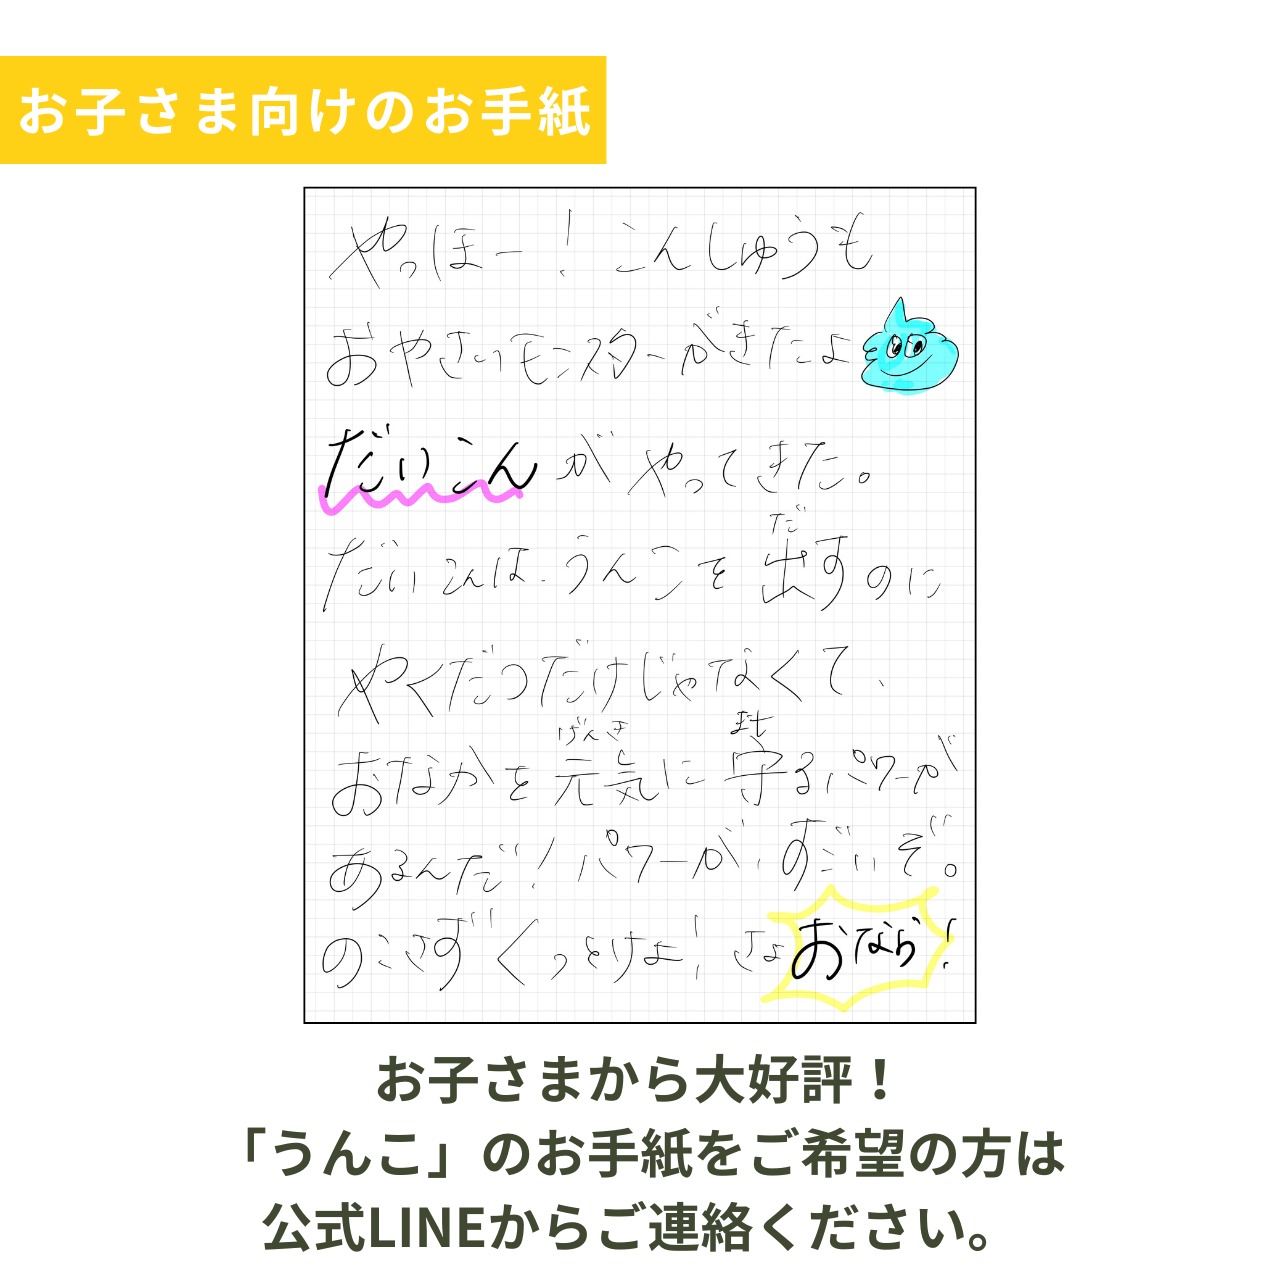 お子さま向けのお手紙
やっほー！こんしゅうも
おやさいモンスターがきたよ
だいこんがやってきた。
だ
だいこんは、うんこを出すのに
やくだつだけじゃなくて、
げんき まも
おなかを元気に守るパワーが
あるんだ！パワーが、すごいぞ。
のこさずくっとけよ！さよおなら！
お子さまから大好評！
「うんこ」のお手紙をご希望の方は
公式LINEからご連絡ください。